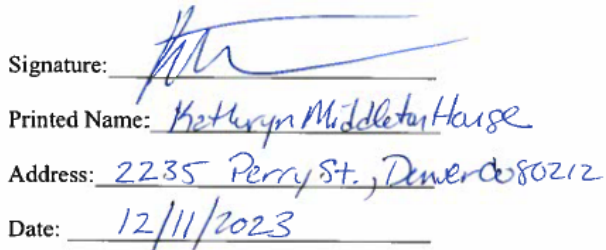 Signature:
Printed Name: Kathryn Middleton House
Address: 2235 Perry St., Denver Co 80212
Date: 12/11/2023